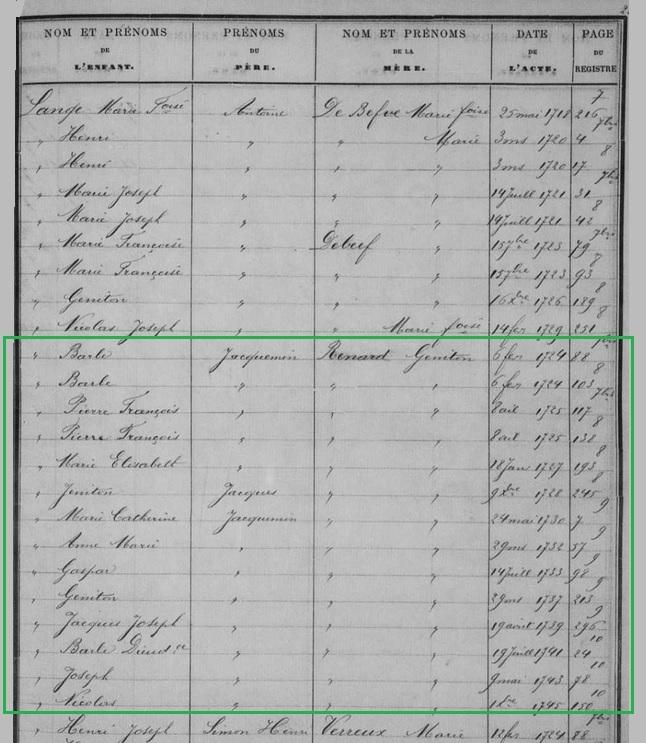 NOM ET PRÉNOMS DE L'ENFANT. PRÉNOMS DU PÈRE. NOM ET PRÉNOMS DE LA MÈRE. DATE DE L'ACTE. PAGE DU REGISTRE
7
Lange Marie Foisé Antoine De Befve Marie foisé 25 mai 1718 216
7bis
„ Henri „ „ Marie 3 ms 1720 4
8
„ Henri „ „ „ 3 ms 1720 17
7bis
„ Marie Joseph „ „ „ 14 juill 1721 31
8
„ Marie Joseph „ „ „ 14 juill 1721 42
7bis
„ Marie Françoise „ Debeef „ 15 7bre 1723 79
8
„ Marie Françoise „ „ „ 15 7bre 1723 93
8
„ Geniton „ „ „ 16 Xbre 1726 189
8
„ Nicolas Joseph „ „ Marie foisé 14 fer 1729 251
7bis
„ Barbe Jacquemin Renard Geniton 6 fer 1724 88
8
„ Barbe „ „ „ 6 fer 1724 103
7bis
„ Pierre François „ „ „ 8 avl 1725 117
8
„ Pierre François „ „ „ 8 avl 1725 138
8
„ Marie Elisabett „ „ „ 18 Janv 1727 193
8
„ Jeniton Jacques „ „ 9 Xbre 1728 245
9
„ Marie Catherine Jacquemin „ „ 24 mai 1730 7
9
„ Anne Marie „ „ „ 29 ms 1732 57
9
„ Gaspar „ „ „ 14 Juill 1733 98
9
„ Geniton „ „ „ 29 ms 1737 213
9
„ Jacques Joseph „ „ „ 19 août 1739 296
10
„ Barbe Dieud.ée „ „ „ 19 Juill 1741 24
10
„ Joseph „ „ „ 9 mai 1743 78
10
„ Nicolas „ „ „ 1 Xbre 1745 150
7bis
„ Henri Joseph Simon Henri Verreux Marie 12 fer 1724 88